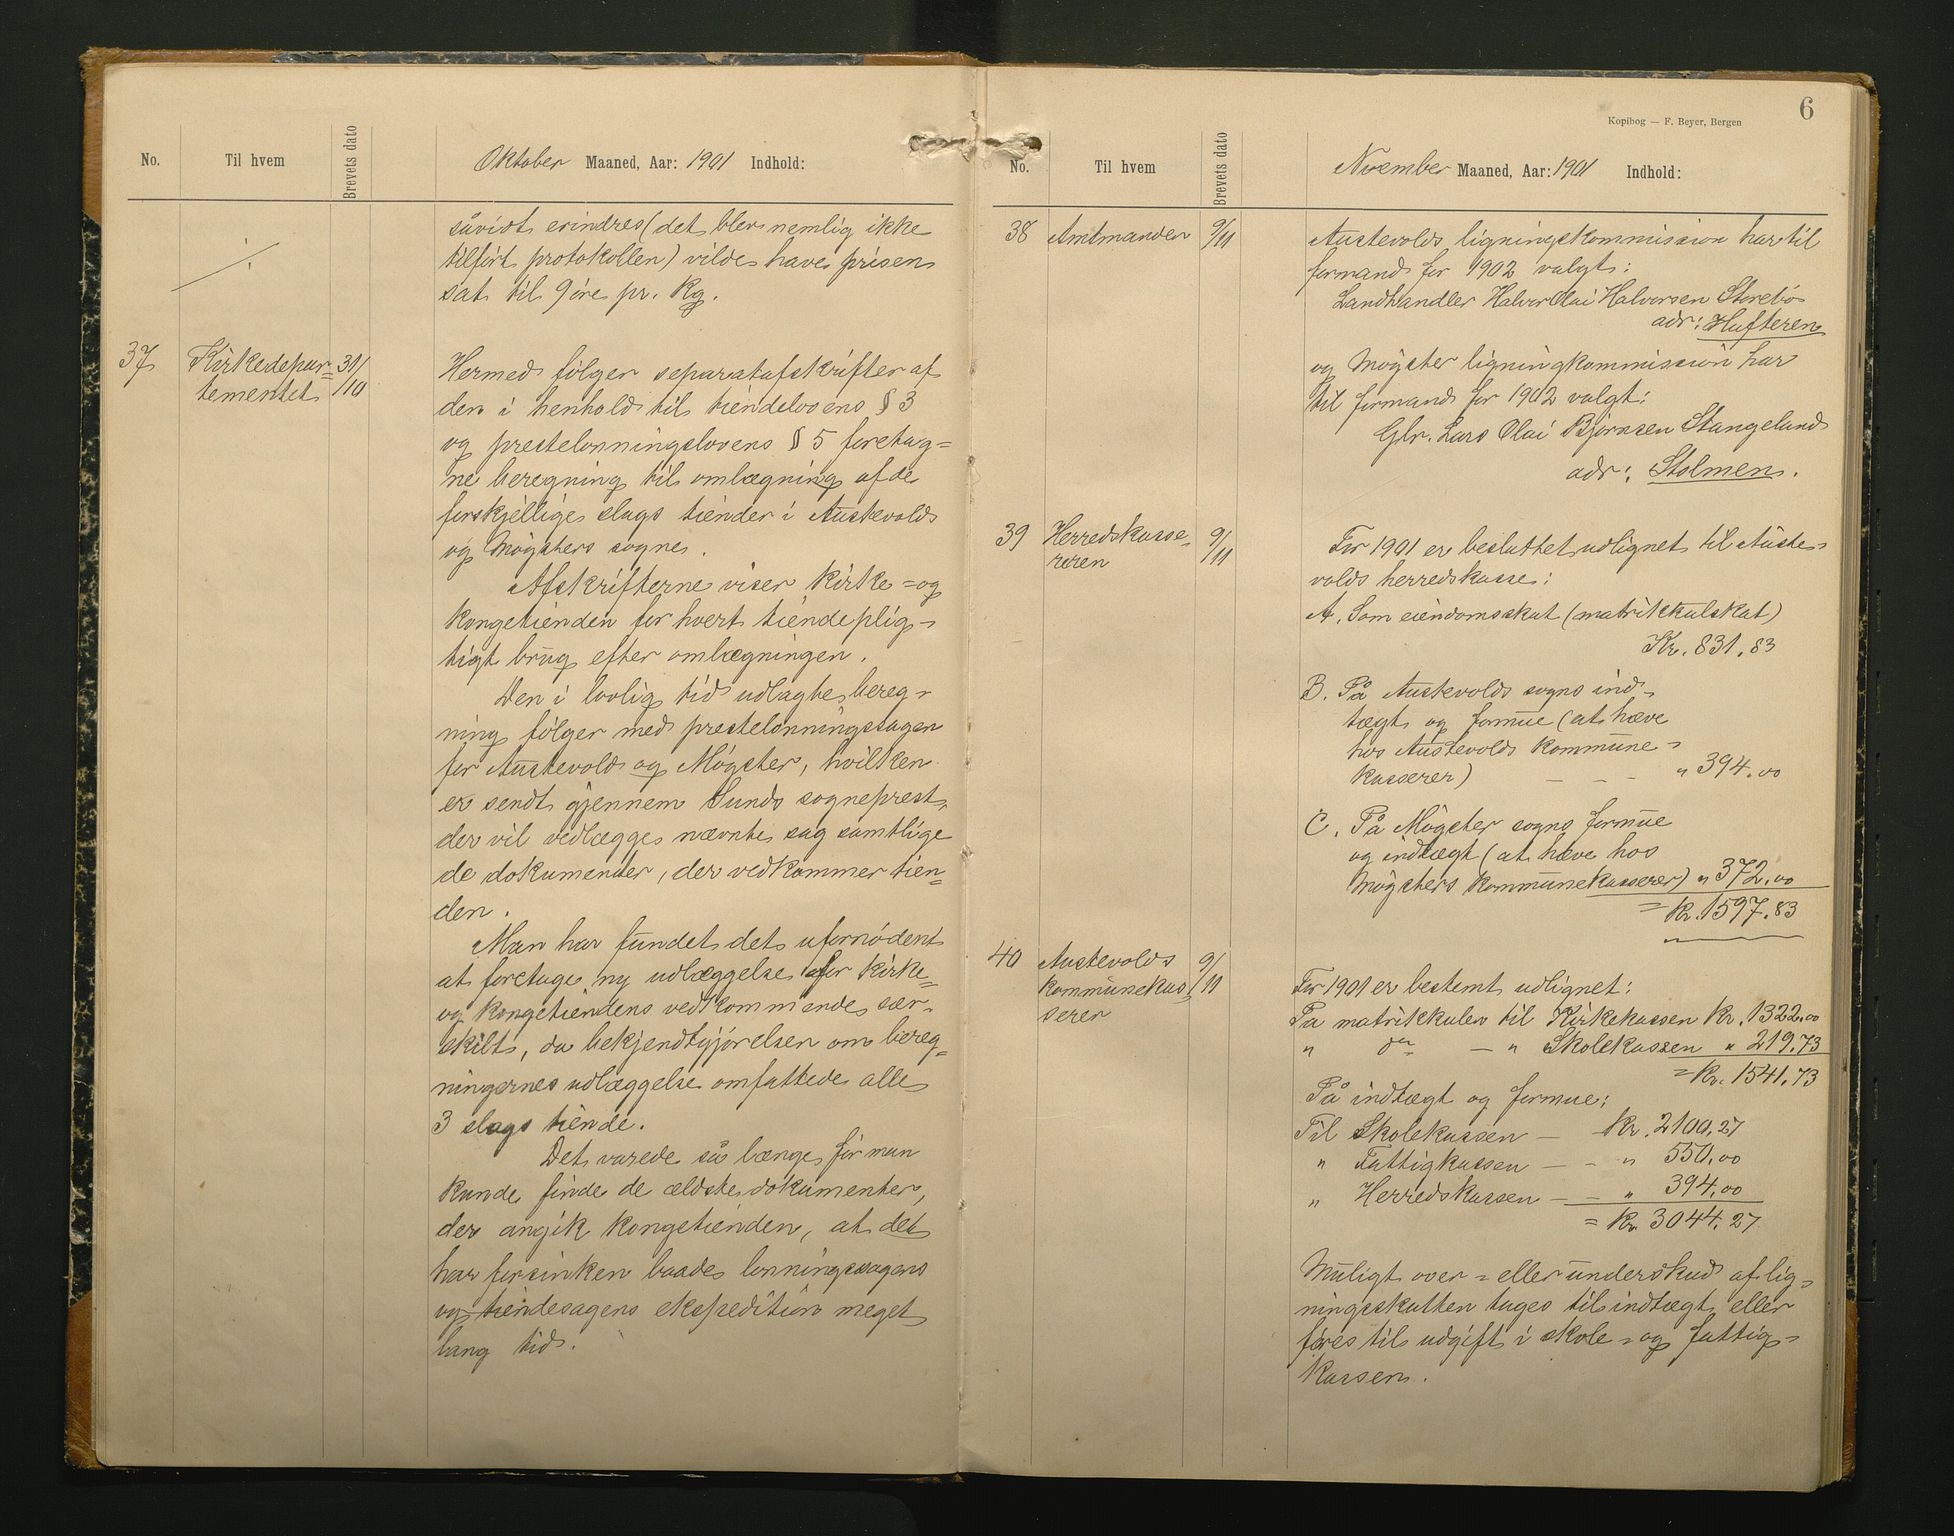 No. Til hvem Brevets dato Oktober Maaned, Aar: 1901 Indhold:
såvidt erindres (det blev nemlig ikke
tilført protokollen) vilde have prisen
sat til 9 øre pr. Kg.
37 Kirkedepar= 31/10 Hermed følger separatafskrifter af
tementet den i henhold til tiendelovens § 3
og prestelønningslovens § 5 foretag=
ne beregning til omlægning af de
forskjellige slags tiender i Austevold
og Møgsters sogne.
Afskrifterne viser kirke= og
kongetienden for hvert tiendeplig-
tigt brug efter omlægningen.
Den i lovlig tid udlagte bereg-
ning følger med prestelønningssagen
for Austevold og Møgster, hvilken
er sendt gjennem Sunds sogneprest,
der vil vedlægge nævnte sag samtlige
de dokumenter, der vedkommer tien-
den.
Man har fundet det ufornødent
at foretage ny udlæggelse for kirke=
og kongetiendens vedkommende sær-
skilt, da bekjendtgjørelsen om bereg-
ningernes udlæggelse omfattede alle
3 slags tiende.
Det varede så længe, før man
kunde finde de ældste dokumenter,
der angik kongetienden, at det
har forsinken baade lønningssagens
og tiendesagens ekspedition meget
lang tid.
6
Kopibog — F. Beyer, Bergen
No. Til hvem Brevets dato November Maaned, Aar: 1901 Indhold:
38 Amtmanden 9/11 Austevolds ligningskommission har til
formand for 1902 valgt:
Landhandler Halvor Olai Halvorsen Storebø
adr: Hufteren
og Møgster ligningkommission har
til formand for 1902 valgt:
Gbr. Lars Olai Bjørnsen Stangeland
adr: Stolmen.
39 Herredskasse- 9/11 For 1901 er besluttet udlignet til Auste-
reren volds herredskasse:
A. Som eiendomsskat (matrikkulskat)
Kr. 831.83
B. På Austevolds sogns ind-
tægt og formue (at hæve
hos Austevolds kommune-
kasserer) — — - " 394.00
C. På Møgster sogns formue
og indtægt (at hæve hos
Møgsters kommunekasserer) " 372.00
= Kr. 1597.83
40 Austevolds 9/11 For 1901 er bestemt udlignet:
kommunekas- På matrikkulen til Kirkekassen Kr. 1322.00
serer " do — " Skolekassen " 219.73
= Kr. 1541.73
På indtægt og formue:
Til Skolekassen — Kr. 2100.27
" Fattigkassen — - " 550.00
" Herredskassen — - " 394.00
= Kr. 3044.27
Muligt over= eller underskud af lig-
ningsskatten tages til indtægt eller
føres til udgift i skole- og fattig-
kassen.